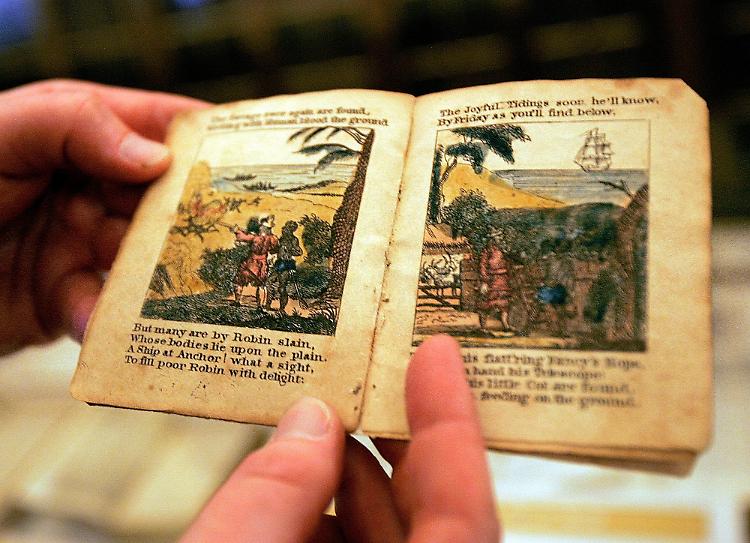 again are found,
human blood the ground
But many are by Robin slain,
Whose bodies lie upon the plain.
A Ship at Anchor! what a sight,
To fill poor Robin with delight:
The Joyful Tidings soon he'll know,
By Friday as you'll find below,
his flatt'ring Fancy's Hope,
hand his Telescope:
his little Cot are found,
feeding on the ground.